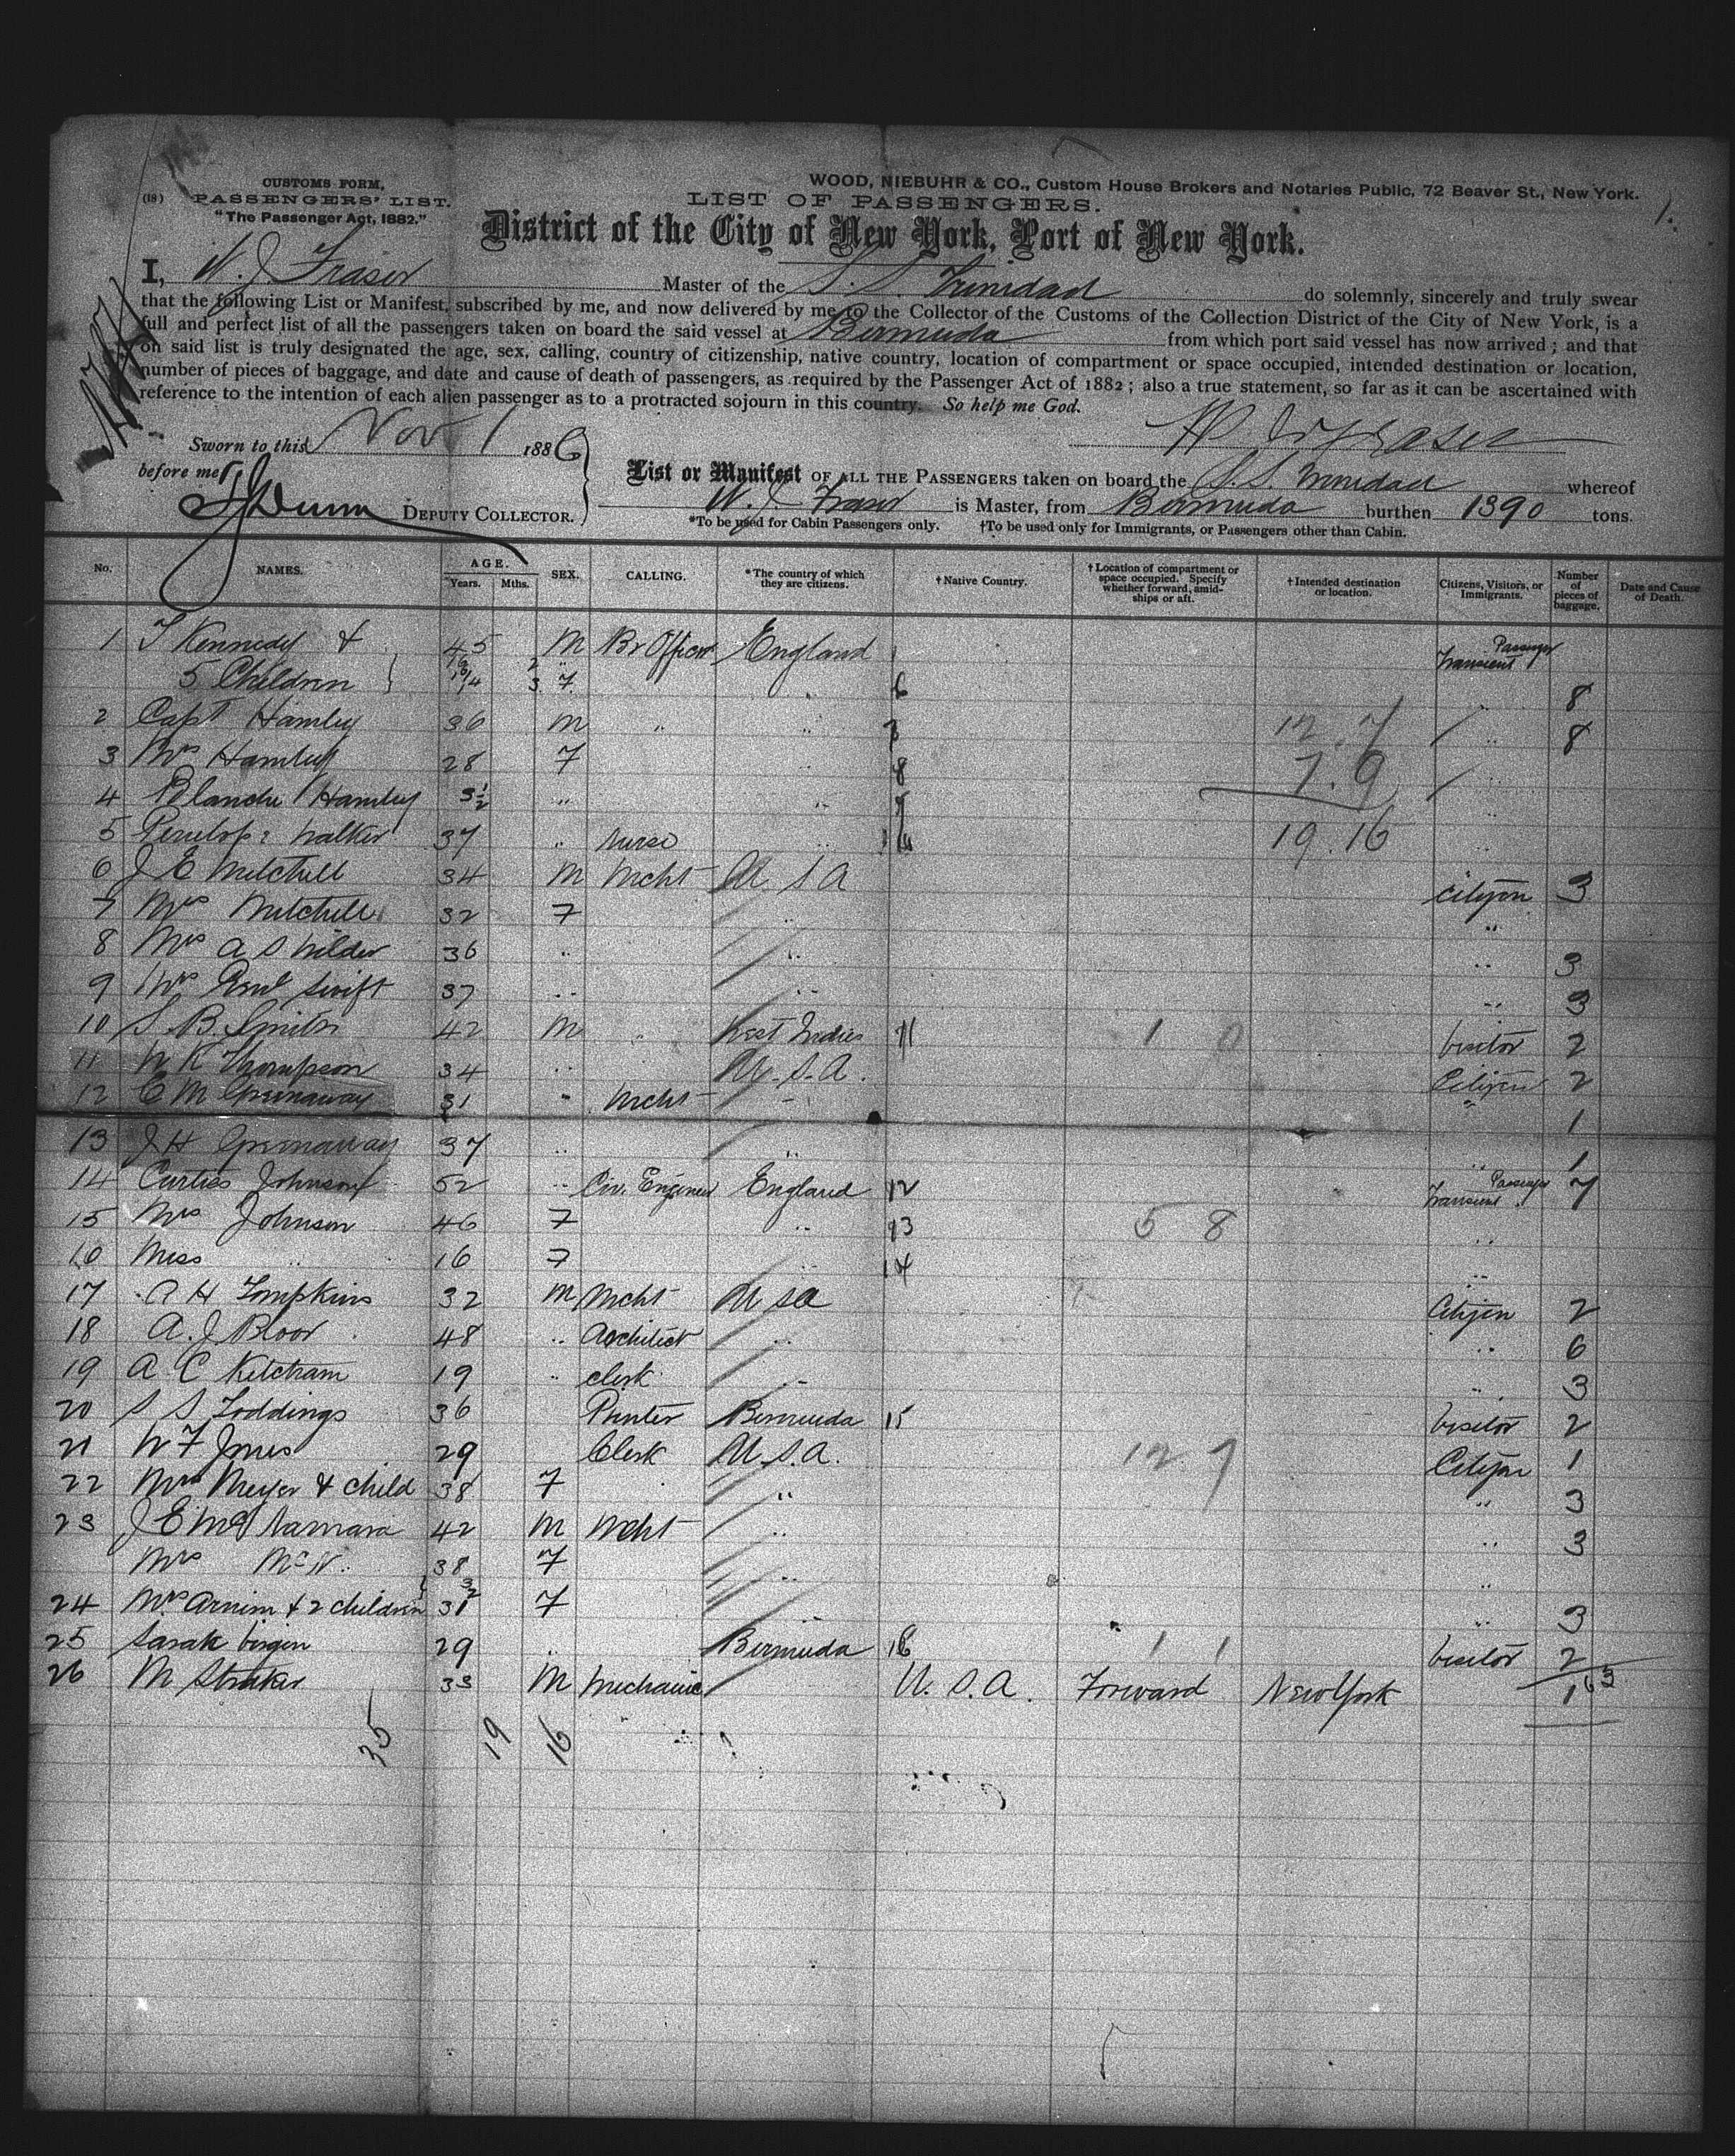 CUSTOMS FORM,
(18) PASSENGERS' LIST.
"The Passenger Act, 1882."
WOOD, NIEBUHR & CO., Custom House Brokers and Notaries Public, 72 Beaver St., New York.
LIST OF PASSENGERS.
1.
District of the City of New York, Port of New York.
I, W. J. Fraser Master of the S. S. Trinidad do solemnly, sincerely and truly swear
that the following List or Manifest, subscribed by me, and now delivered by me to the Collector of the Customs of the Collection District of the City of New York, is a
full and perfect list of all the passengers taken on board the said vessel at Bermuda from which port said vessel has now arrived; and that
on said list is truly designated the age, sex, calling, country of citizenship, native country, location of compartment or space occupied, intended destination or location,
number of pieces of baggage, and date and cause of death of passengers, as required by the Passenger Act of 1882; also a true statement, so far as it can be ascertained with
reference to the intention of each alien passenger as to a protracted sojourn in this country. So help me God.
Sworn to this Nov 1 1886
W J Fraser
before me
Dunn DEPUTY COLLECTOR.
List or Manifest OF ALL THE PASSENGERS taken on board the S. S. Trinidad whereof
W. J. Fraser is Master, from Bermuda burthen 1390 tons.
*To be used for Cabin Passengers only. †To be used only for Immigrants, or Passengers other than Cabin.
No. NAMES. AGE. Years. Mths. SEX. CALLING. *The country of which they are citizens. †Native Country. †Location of compartment or space occupied. Specify whether forward, amidships or aft. †Intended destination or location. Citizens, Visitors, or Immigrants. Number of pieces of baggage. Date and Cause of Death.
1 T Kennedy & 45 M Br Officer England 1 Transient Passenger
5 Children 2 3 F " 6 " 8
2 Capt Hamley 36 M " " 12.7 " 8
3 Mrs Hamley 28 F " 8 7.9 "
4 Blanche Hamley 3½ " " "
5 Penelope Walker 37 " nurse " 19.16 "
6 J E Mitchell 34 M Mcht U S A Citizen 3
7 Mrs Mitchell 32 F " "
8 Mrs A S Wilder 36 " " " 3
9 Mrs Swift 37 " " " 3
10 S. B. Smith 42 M " West Indies 11 1 0 Visitor 2
11 W K Thompson 34 " U. S. A. Citizen 2
12 C M Greenaway 31 " Mcht " " 1
13 J H Greenaway 37 " " " 1
14 Curtiss Johnson 52 " Civ. Engineer England 12 Transient Passenger 7
15 Mrs Johnson 46 F " 13 5 8 "
16 Miss " 16 F " 14 "
17 A H Tompkins 32 M Mcht U S A Citizen 2
18 A. J Bloor 48 " Architect " " 6
19 A C Ketcham 19 " clerk " " 3
20 S S Toddings 36 Printer Bermuda 15 Visitor 2
21 W F Jones 29 Clerk U. S. A. 12 7 Citizen 1
22 Mrs Meyer & child 38 F " " 3
23 J E McNamara 42 M Mcht " " 3
Mrs McN. 38 F " "
24 Mrs Arnim & 2 children 31 F " " 3
25 Sarah Virgin 29 " Bermuda 16 1 1 Visitor 2
26 M Straker 33 M Mechanic U. S. A. Forward New York 1
63
35 19 16